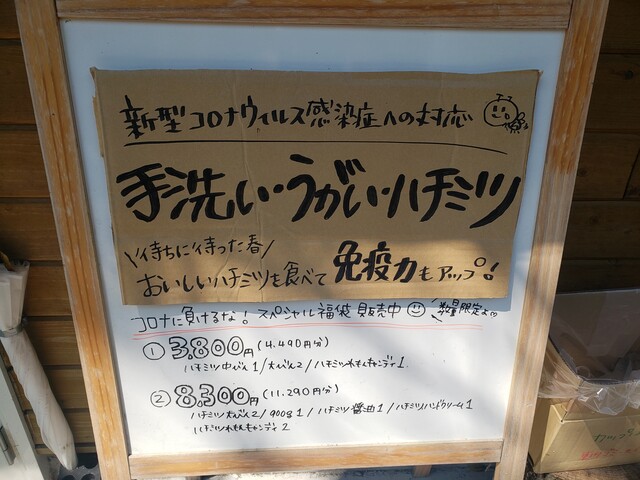 新型コロナウィルス感染症への対応
手洗い・うがい・ハチミツ
\待ちに待った春/
おいしいハチミツを食べて免疫力もアップ!
コロナに負けるな! スペシャル福袋販売中
数量限定
① 3,800円 (4.490円分)
ハチミツ中びん1/大びん2/ハチミツれもんキャンディ1
② 8,300円 (11.290円分)
ハチミツ大びん2/900g1/ハチミツ醤油1/ハチミツハンドクリーム1
ハチミツれもんキャンディ2